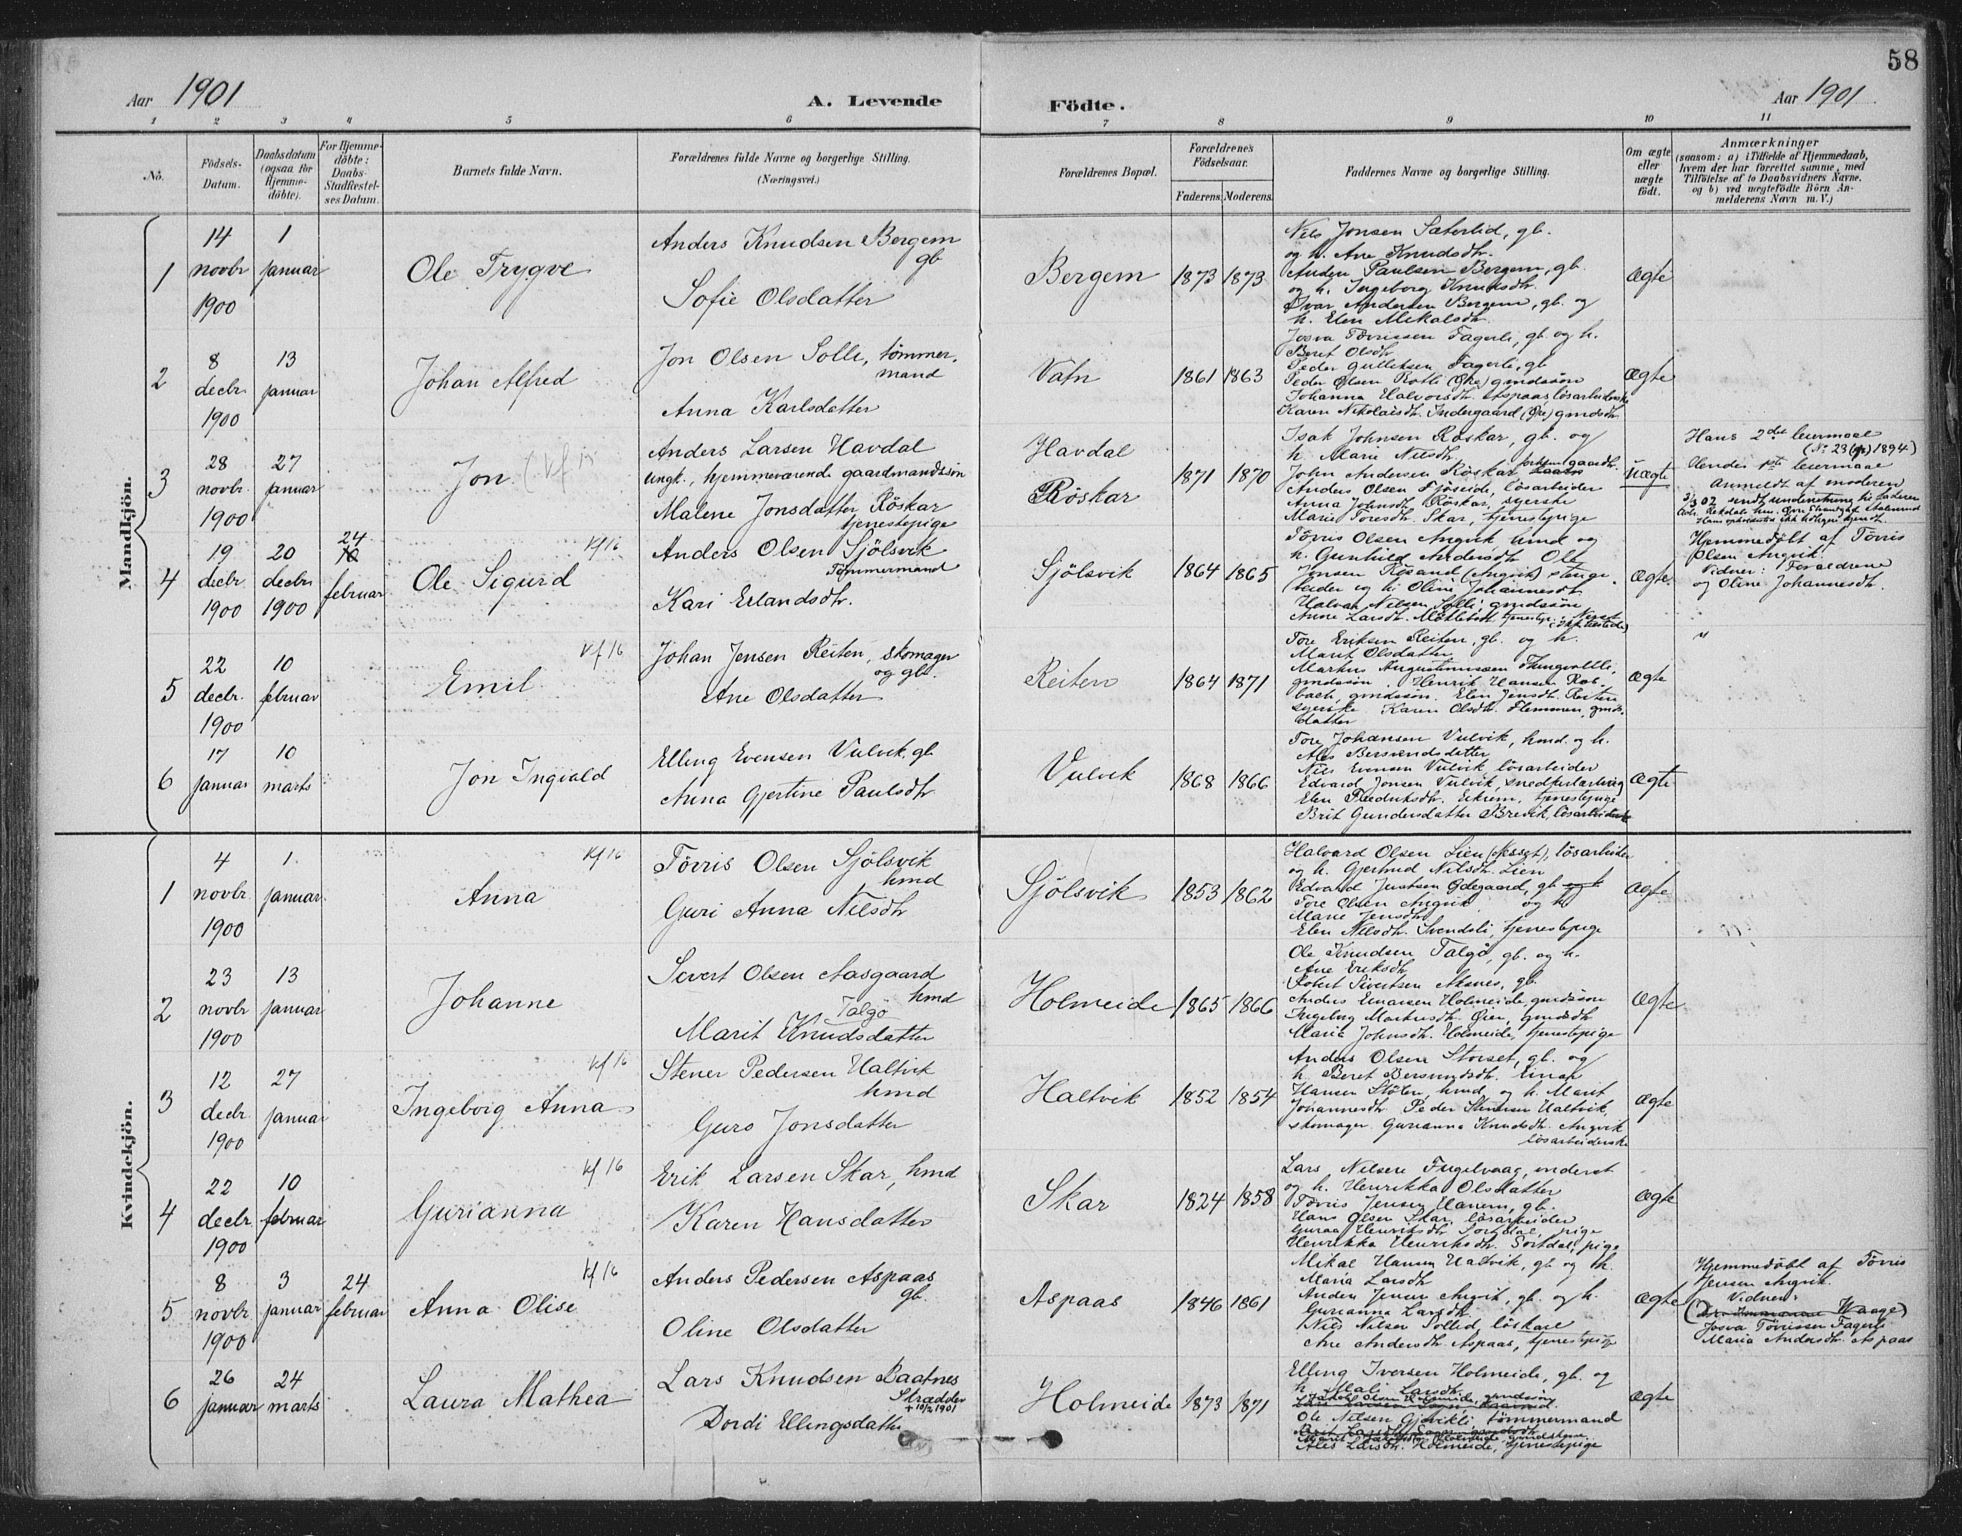 58
Aar 1901
A. Levende Födte.
Aar 1901
1 2 3 4 5 6 7 8 9 10 11
No.
Födsels-Datum.
Daabsdatum (ogsaa for Hjemmedöbte).
For Hjemmedöbte: Daabs-Stadfæstelses Datum.
Barnets fulde Navn.
Forældrenes fulde Navne og borgerlige Stilling.
(Næringsvei.)
Forældrenes Bopæl.
Forældrenes Födselsaar.
Faderens. Moderens.
Faddernes Navne og borgerlige Stilling.
Om ægte eller uægte födt.
Anmærkninger
(saasom: a) i Tilfælde af Hjemmedaab,
hvem der har forrettet samme, med
Tilföielse af to Daabsvidners Navne,
og b) ved uægtefödte Börn An-
melderens Navn m. V.)
Mandkjön.
1
14 novbr 1900
1 januar
Ole Trygve
Anders Knudsen Bergem
gb
Sofie Olsdatter
Bergem
1873 1873
Nils Jonsen Sæterlid, gb.
og h. Ane Knudsdtr.
Anders Paulsen Bergem, gb.
og h. Ingeborg Knudsdtr.
Andersen Bergem, gb. og
h. Elen Mikalsdtr.
Ægte
2
8 decbr. 1900
13 januar
Johan Alfred
Jon Olsen Solli, tömmer-
mand
Anna Karlsdatter
Vatn
1861 1863
Josva Törrissen Fagerli, gb. og h.
Beret Olsdtr
Peder Gulleksen Fagerli, gb
Peder Olsen gmdssön
Johanna Halvorsdtr. Aspaas lösarbeiderske
Karen Nikolaisdtr. Indergaard gmdsdtr.
Ægte
3
28 novbr. 1900
27 januar
Jon
Anders Larsen Havdal
ungk., hjemmeværende gaardmandssön
Malene Jonsdatter Röskar
tjenestepige
Havdal
Röskar
1871 1870
Isak Johnsen Röskar, gb. og
h. Marie Nilsdtr.
John Andersen Röskar
Anders Olsen Fjöseide, lösarbeider
Anna Johnsdtr Röskar, syerske
Marie Toresdtr. Skar, tjenestepige
Uægte
Hans 2det leiermaal
(No. 23 1894)
Hendes 1ste leiermaal
Anmeldt af moderen
4
19 decbr. 1900
20 decbr 1900
24 februar
Ole Sigurd
Kf 16
Anders Olsen Sjölsvik
Tömmermand
Kari Erlandsdtr.
Sjölsvik
1864 1865
Törris Olsen Angvik hmd og
h. Gunhild Andersdtr Ole
Jonsen Rösand (Angvik) stenge-
beider og h. Oline Johannesdtr
Halvar Nilsen Solli, gmdssön
Anne Larsdtr.
Ægte
Hjemmedöbt af Törris
Olsen Angvik.
Vidner: Forældrene
og Oline Johannesdtr.
5
22 decbr. 1900
10 februar
Emil
Kf 16
Johan Jensen Reiten, skomager
og gbr.
Ane Olsdatter
Reiten
1864 1871
Tore Eriksen Reiten, gb. og h.
Marit Olsdatter
Markus Augustinussen
gmdssön. Henrik Hansen Rob-
bach, gmdssön. Elen Jensdtr. Reiten
syerske. Karen Olsdtr. Flemmen, gmds-
datter
Ægte
"
6
17 januar
10 marts
Jon Ingvald
Elling Evensen Vulvik, gb
Anna Gjertine Paulsdtr
Vulvik
1868 1866
Tore Johansen Vulvik, hmd. og h.
Ales Bersvendsdatter
Nils Evensen Vulvik lösarbeider
Edvard Jonsen Vulvik, snedkerlærling
Elen Fredriksdtr. Eikrem, tjenestepige
Brit Gundersdatter Brevik, lösarbeiderske
Ægte
Kvindekjön.
1
4 novbr. 1900
1 januar
Anna
Kf 16
Törris Olsen Sjölsvik
hmd
Guri Anna Nilsdtr
Sjölsvik
1853 1862
Halvard Olsen Lien (Nesset), lösarbeider
og h. Gjertrud Nilsdtr. Lien
Edvard Justsen Ödegaard, gb
Tore Olsen Angvik og h
Marie Jensdtr
Elen Nilsdtr. Svendsli, tjenestepige
Ægte
2
23 novbr 1900
13 januar
Johanne
Sivert Olsen Aasgaard
hmd
Talgö
Marit Knudsdatter
Holmeide
1865 1866
Ole Knudsen Talgö, gb. og h.
Ane Eriksdtr
Robert Sivertsen Alsnes, gb.
Anders Einarsen Holmeide, gmdssön
Ingeborg Martinsdtr. Öien, gmdsdtr
Maria Johnsdtr. Holmeide, tjenestepige
Ægte
3
12 decbr 1900
27 januar
Ingeborg Anna
Kf 16
Stener Pedersen Haltvik
hmd
Guro Jonsdatter
Haltvik
1852 1854
Anders Olsen Storset, gb. og
h. Beret Bersvendsdtr. Einar
Hansen Stölen, hmd, og h. Marit
Johannesdtr Peder Stenersen Haltvik,
skomager. Gurianna Knudsdtr. Angvik
lösarbeiderske
Ægte
4
22 decbr 1900
10 februar
Gurianna
Kf 16
Erik Larsen Skar, hmd
Karen Hansdatter
Skar
1824 1858
Lars Nilsen Fugelvaag, inderst
og h. Henrikka Olsdatter
Törris Jensen Hanem, gb.
Hans Olsen Skar, lösarbeider
Guraa Henriksdtr Sortdal, pige
Henrikka Henriksdtr. Sortdal, pige
Ægte
5
8 novbr. 1900
3 januar
24 februar
Anna Olise
Kf 16
Anders Pedersen Aspaas
gb.
Oline Olsdatter
Aspaas
1846 1861
Mikal Hansen Haltvik, gb og h.
Maria Larsdtr
Anders Jensen Angvik, gb. og h.
Gurianna Larsdtr.
Nils Nilsen Sollid, löskarl
Ane Andersdtr. Aspaas, tjenestepige
Ægte
Hjemmedöbt af Törris
Jensen Angvik.
Vidner:
Waage)
Josva Törrissen Fagerli
Maria Andersdtr. Aspaas
6
26 januar
24 marts
Laura Mathea
Lars Knudsen Baatnes
Skrædder
+ 10/2 1901
Dordi Ellingsdatter
Holmeide
1873 1871
Elling Iversen Holmeide, gb. og
h. Mali Larsdtr.
Ole Nilsen Gjövikli tömmermand
Ales Larsdtr. Holmeide, tjenestepige
Ægte